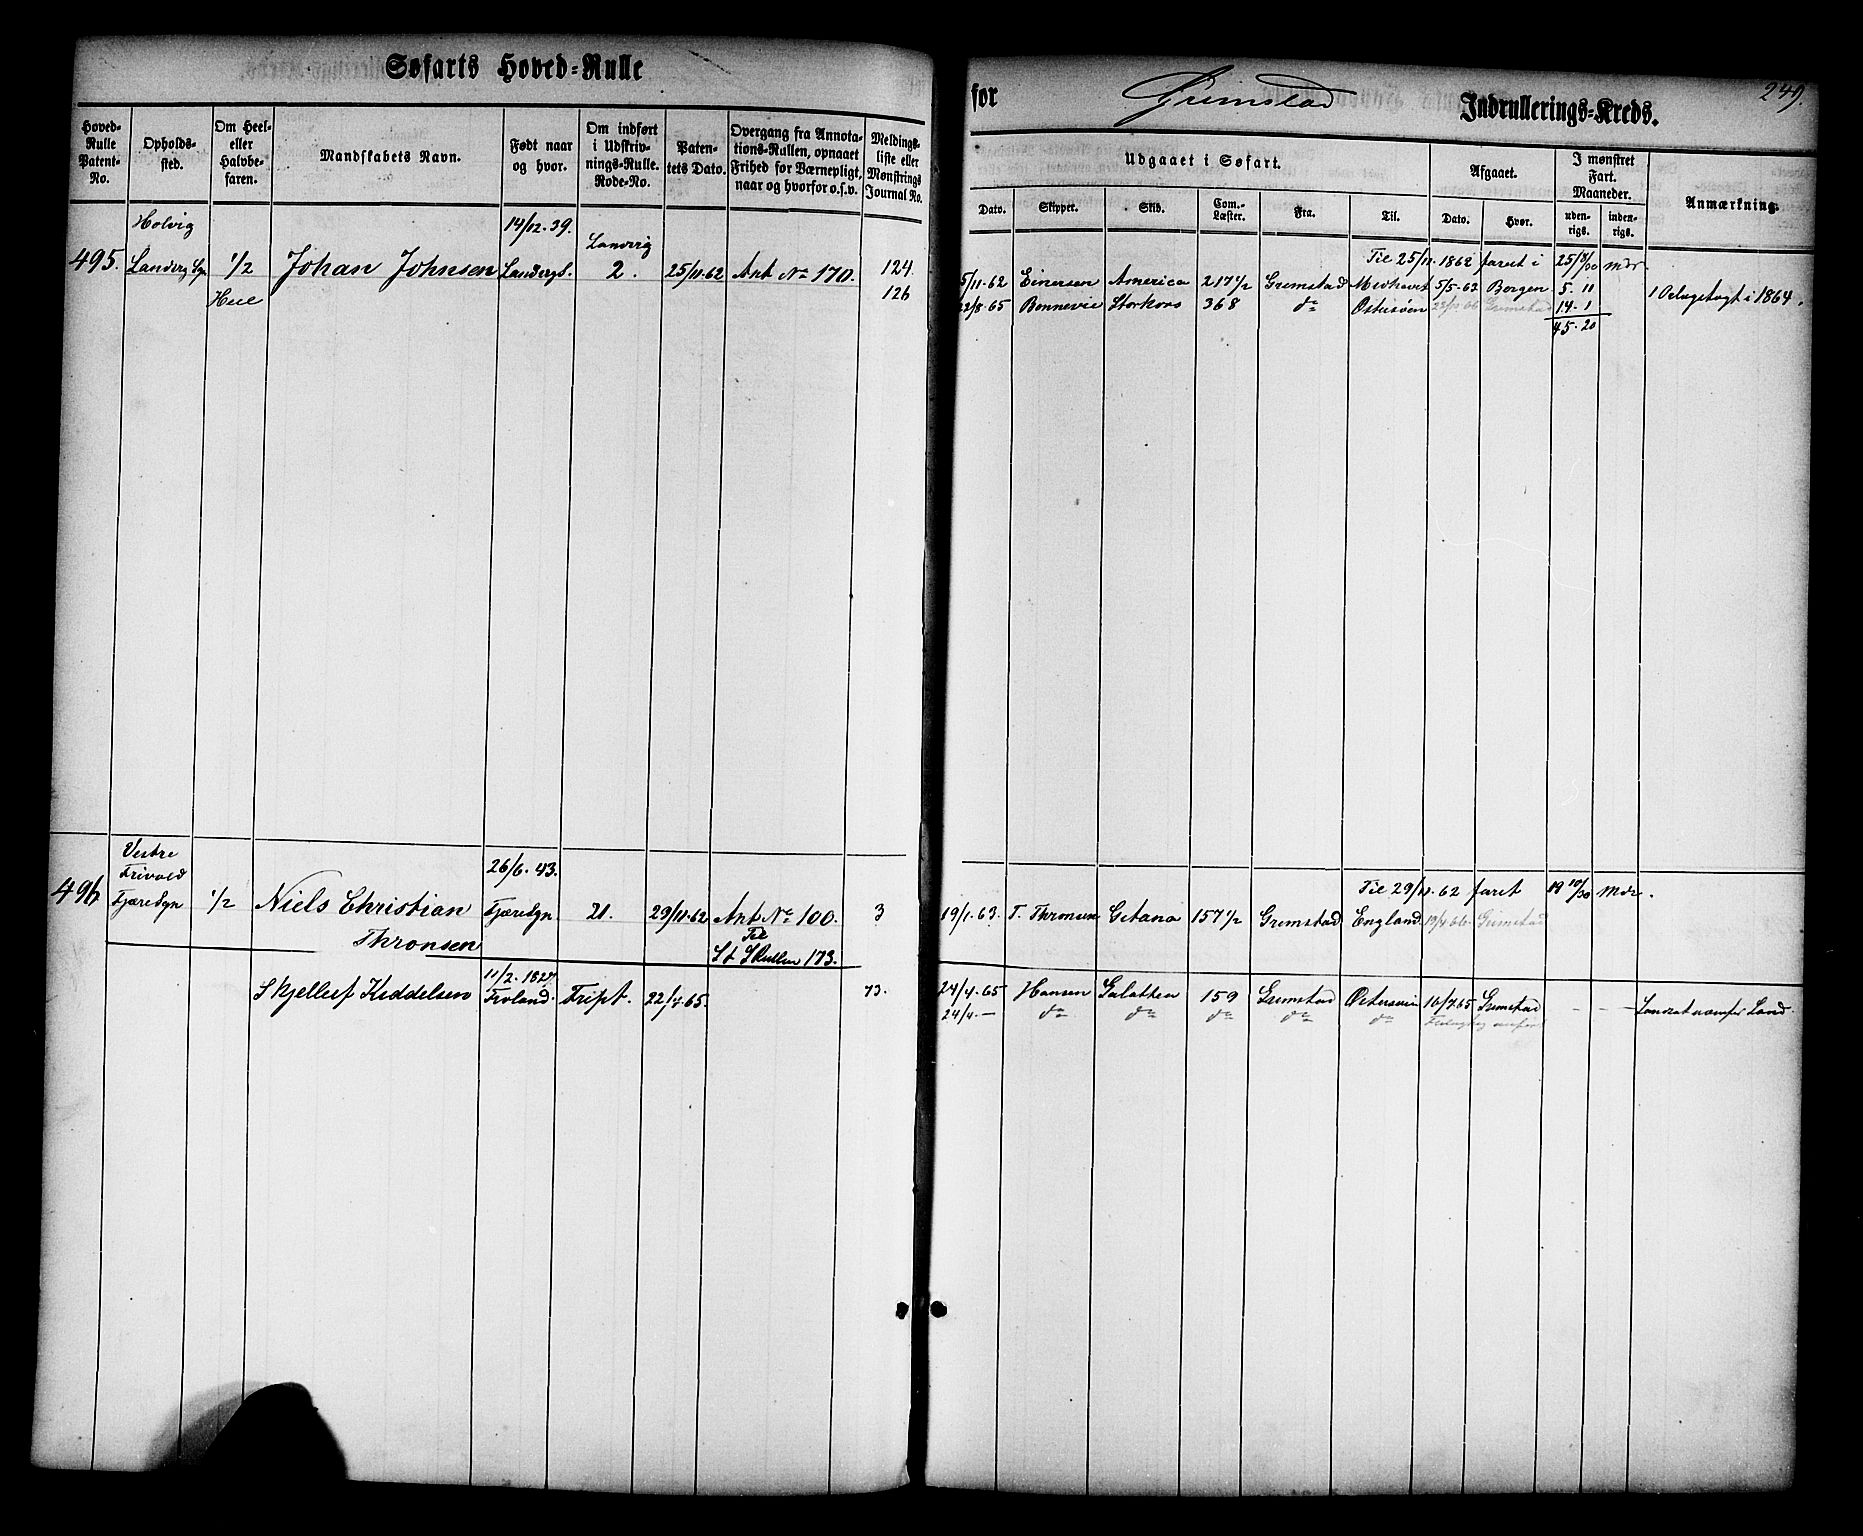 Søfarts Hoved=Rulle
for Grimstad Indrullerings=Kreds.
249.
Hoved-Rulle Patent-No.
Opholds-sted.
Om Heel- eller Halvbe-faren.
Mandskabets Navn.
Født naar og hvor.
Om indført i Udskriv-nings-Rulle. Rode-No.
Paten-tets Dato.
Overgang fra Annota-tions-Rullen, opnaaet Frihed for Værnepligt, naar og hvorfor o.s.v.
Meldings-liste eller Mønstrings Journal No.
Udgaaet i Søfart.
Dato. Skipper. Skib. Com.-Læster. Fra. Til.
Afgaaet.
Dato. Hvor.
I mønstret Fart. Maaneder.
uden-rigs. inden-rigs.
Anmærkning.
Holvig 14/12.39. Landvig
495. 1/2 Johan Johnsen 2. 25/11 62 Ant No 170. 124
Heel 126
Til 25/11 1862 faret i 25 8/30 mdr
5/11-62 Einersen America 217 1/2 Grimstad Medhavet 5/5-63 Bergen 5. 11
22/8-65 Bonnevie Storkors 368 do Østersøen Grimstad 14-1 1 Oplagstogt i 1864.
45-20
Vestre 26/6-43.
Frivold
496 Fjære Sgn 1/2 Niels Christian Fjære Sgn 21. 29/11-62 Ant No 100. 3
Thronsen Til
St. S Rullen 173.
Til 29/11-62 faret 19 10/30 Mdr.
19/1-63. T. Thronsen Gitana 157 1/2 Grimstad England. 19/4 66. Grimstad
11/2-1827
Skjellef Keddelsen Froland. Fript. 22/4 65. 73.
24/4-65 Hansen Galathea 159 Grimstad 10/7 65 Grimstad - - -
24/4- do do do do do